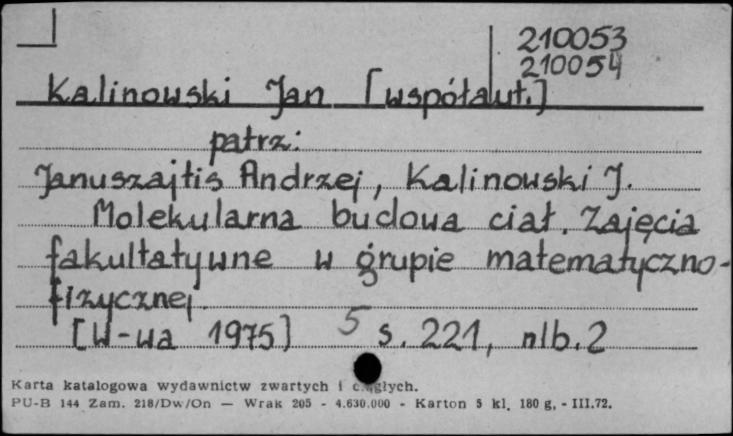 210053
210054
Kalinowski Jan [współaut.]
patrz:
Januszajtis Andrzej, Kalinowski J.
Molekularna budowa ciał. Zajęcia
fakultatywne w grupie matematyczno-
fizycznej.
[W-wa 1975] 5 s. 221, nlb. 2
Karta katalogowa wydawnictw zwartych i ciągłych.
PU-B 144 Zam. 218/Dw/On — Wrak 205 - 4.630.000 - Karton 5 kl. 180 g. - III.72.